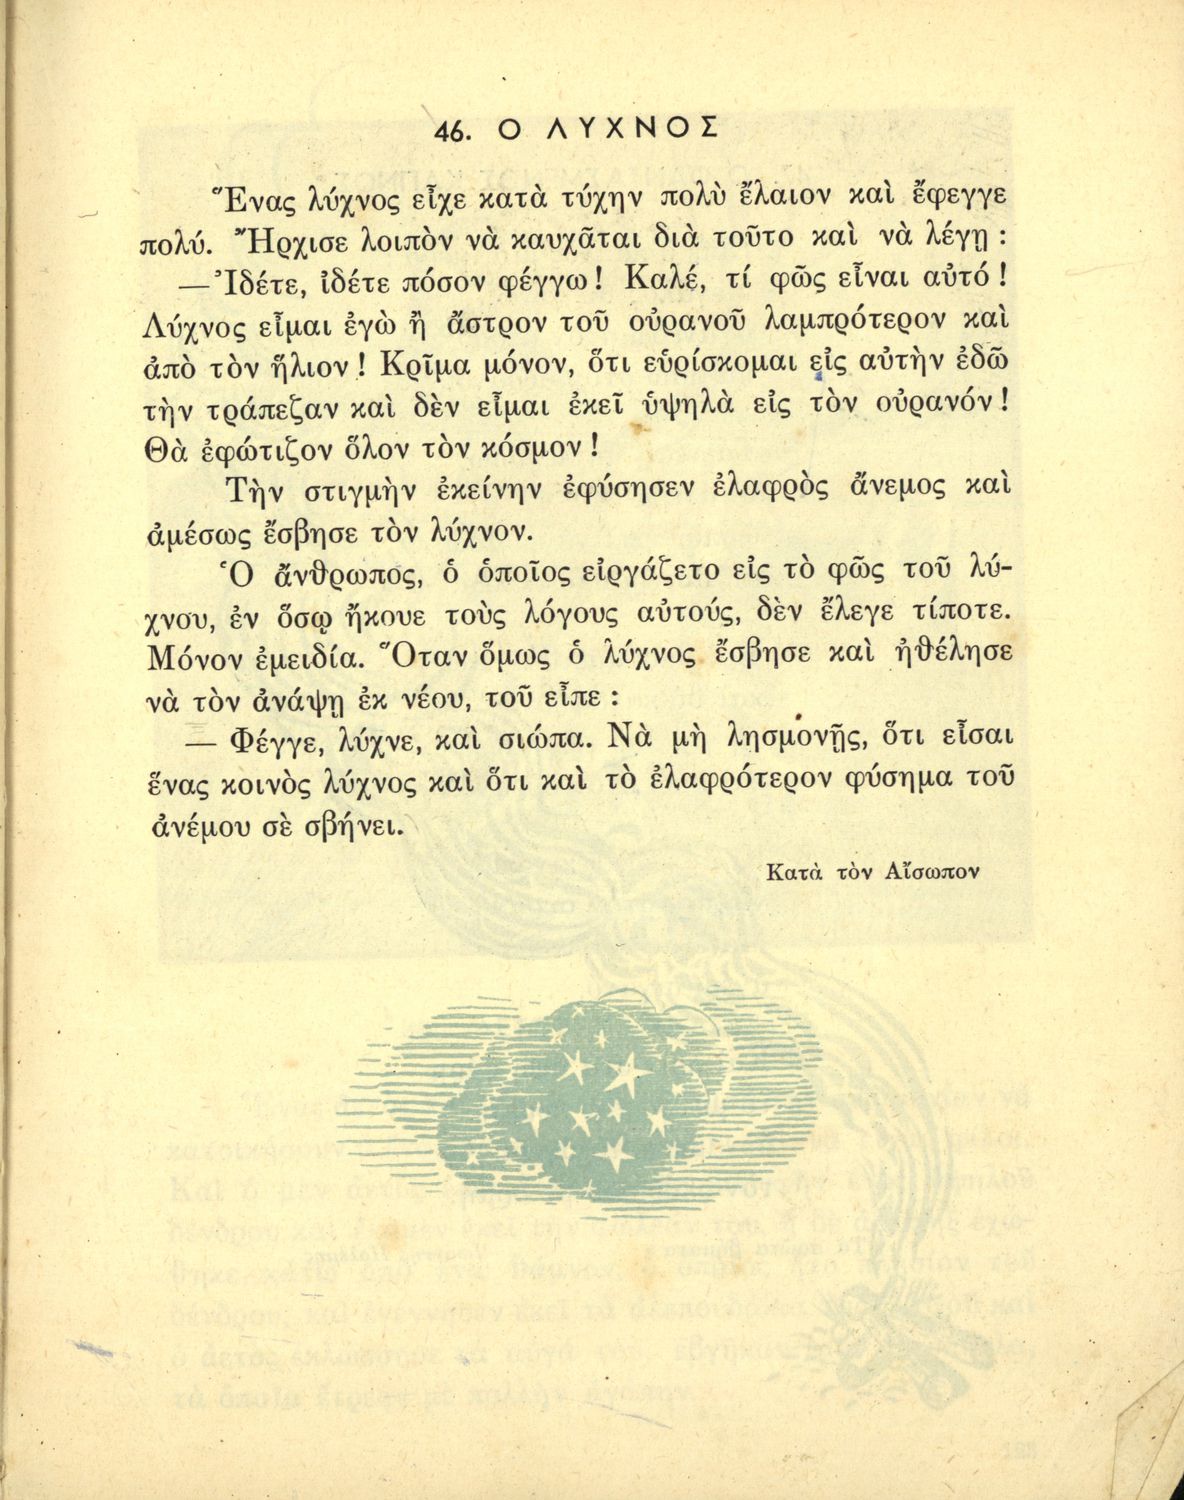 46. Ο ΛΥΧΝΟΣ
Ἕνας λύχνος εἶχε κατὰ τύχην πολὺ ἔλαιον καὶ ἔφεγγε
πολύ. Ἤρχισε λοιπὸν νὰ καυχᾶται διὰ τοῦτο καὶ νὰ λέγῃ :
—Ἰδέτε, ἰδέτε πόσον φέγγω! Καλέ, τί φῶς εἶναι αὐτό!
Λύχνος εἶμαι ἐγὼ ἢ ἄστρον τοῦ οὐρανοῦ λαμπρότερον καὶ
ἀπὸ τὸν ἥλιον! Κρῖμα μόνον, ὅτι εὑρίσκομαι εἰς αὐτὴν ἐδῶ
τὴν τράπεζαν καὶ δὲν εἶμαι ἐκεῖ ὑψηλὰ εἰς τὸν οὐρανόν!
Θὰ ἐφώτιζον ὅλον τὸν κόσμον!
Τὴν στιγμὴν ἐκείνην ἐφύσησεν ἐλαφρὸς ἄνεμος καὶ
ἀμέσως ἔσβησε τὸν λύχνον.
Ὁ ἄνθρωπος, ὁ ὁποῖος εἰργάζετο εἰς τὸ φῶς τοῦ λύ-
χνου, ἐν ὅσῳ ἤκουε τοὺς λόγους αὐτούς, δὲν ἔλεγε τίποτε.
Μόνον ἐμειδία. Ὅταν ὅμως ὁ λύχνος ἔσβησε καὶ ἠθέλησε
νὰ τὸν ἀνάψῃ ἐκ νέου, τοῦ εἶπε :
— Φέγγε, λύχνε, καὶ σιώπα. Νὰ μὴ λησμονῇς, ὅτι εἶσαι
ἕνας κοινὸς λύχνος καὶ ὅτι καὶ τὸ ἐλαφρότερον φύσημα τοῦ
ἀνέμου σὲ σβήνει.
Κατὰ τὸν Αἴσωπον